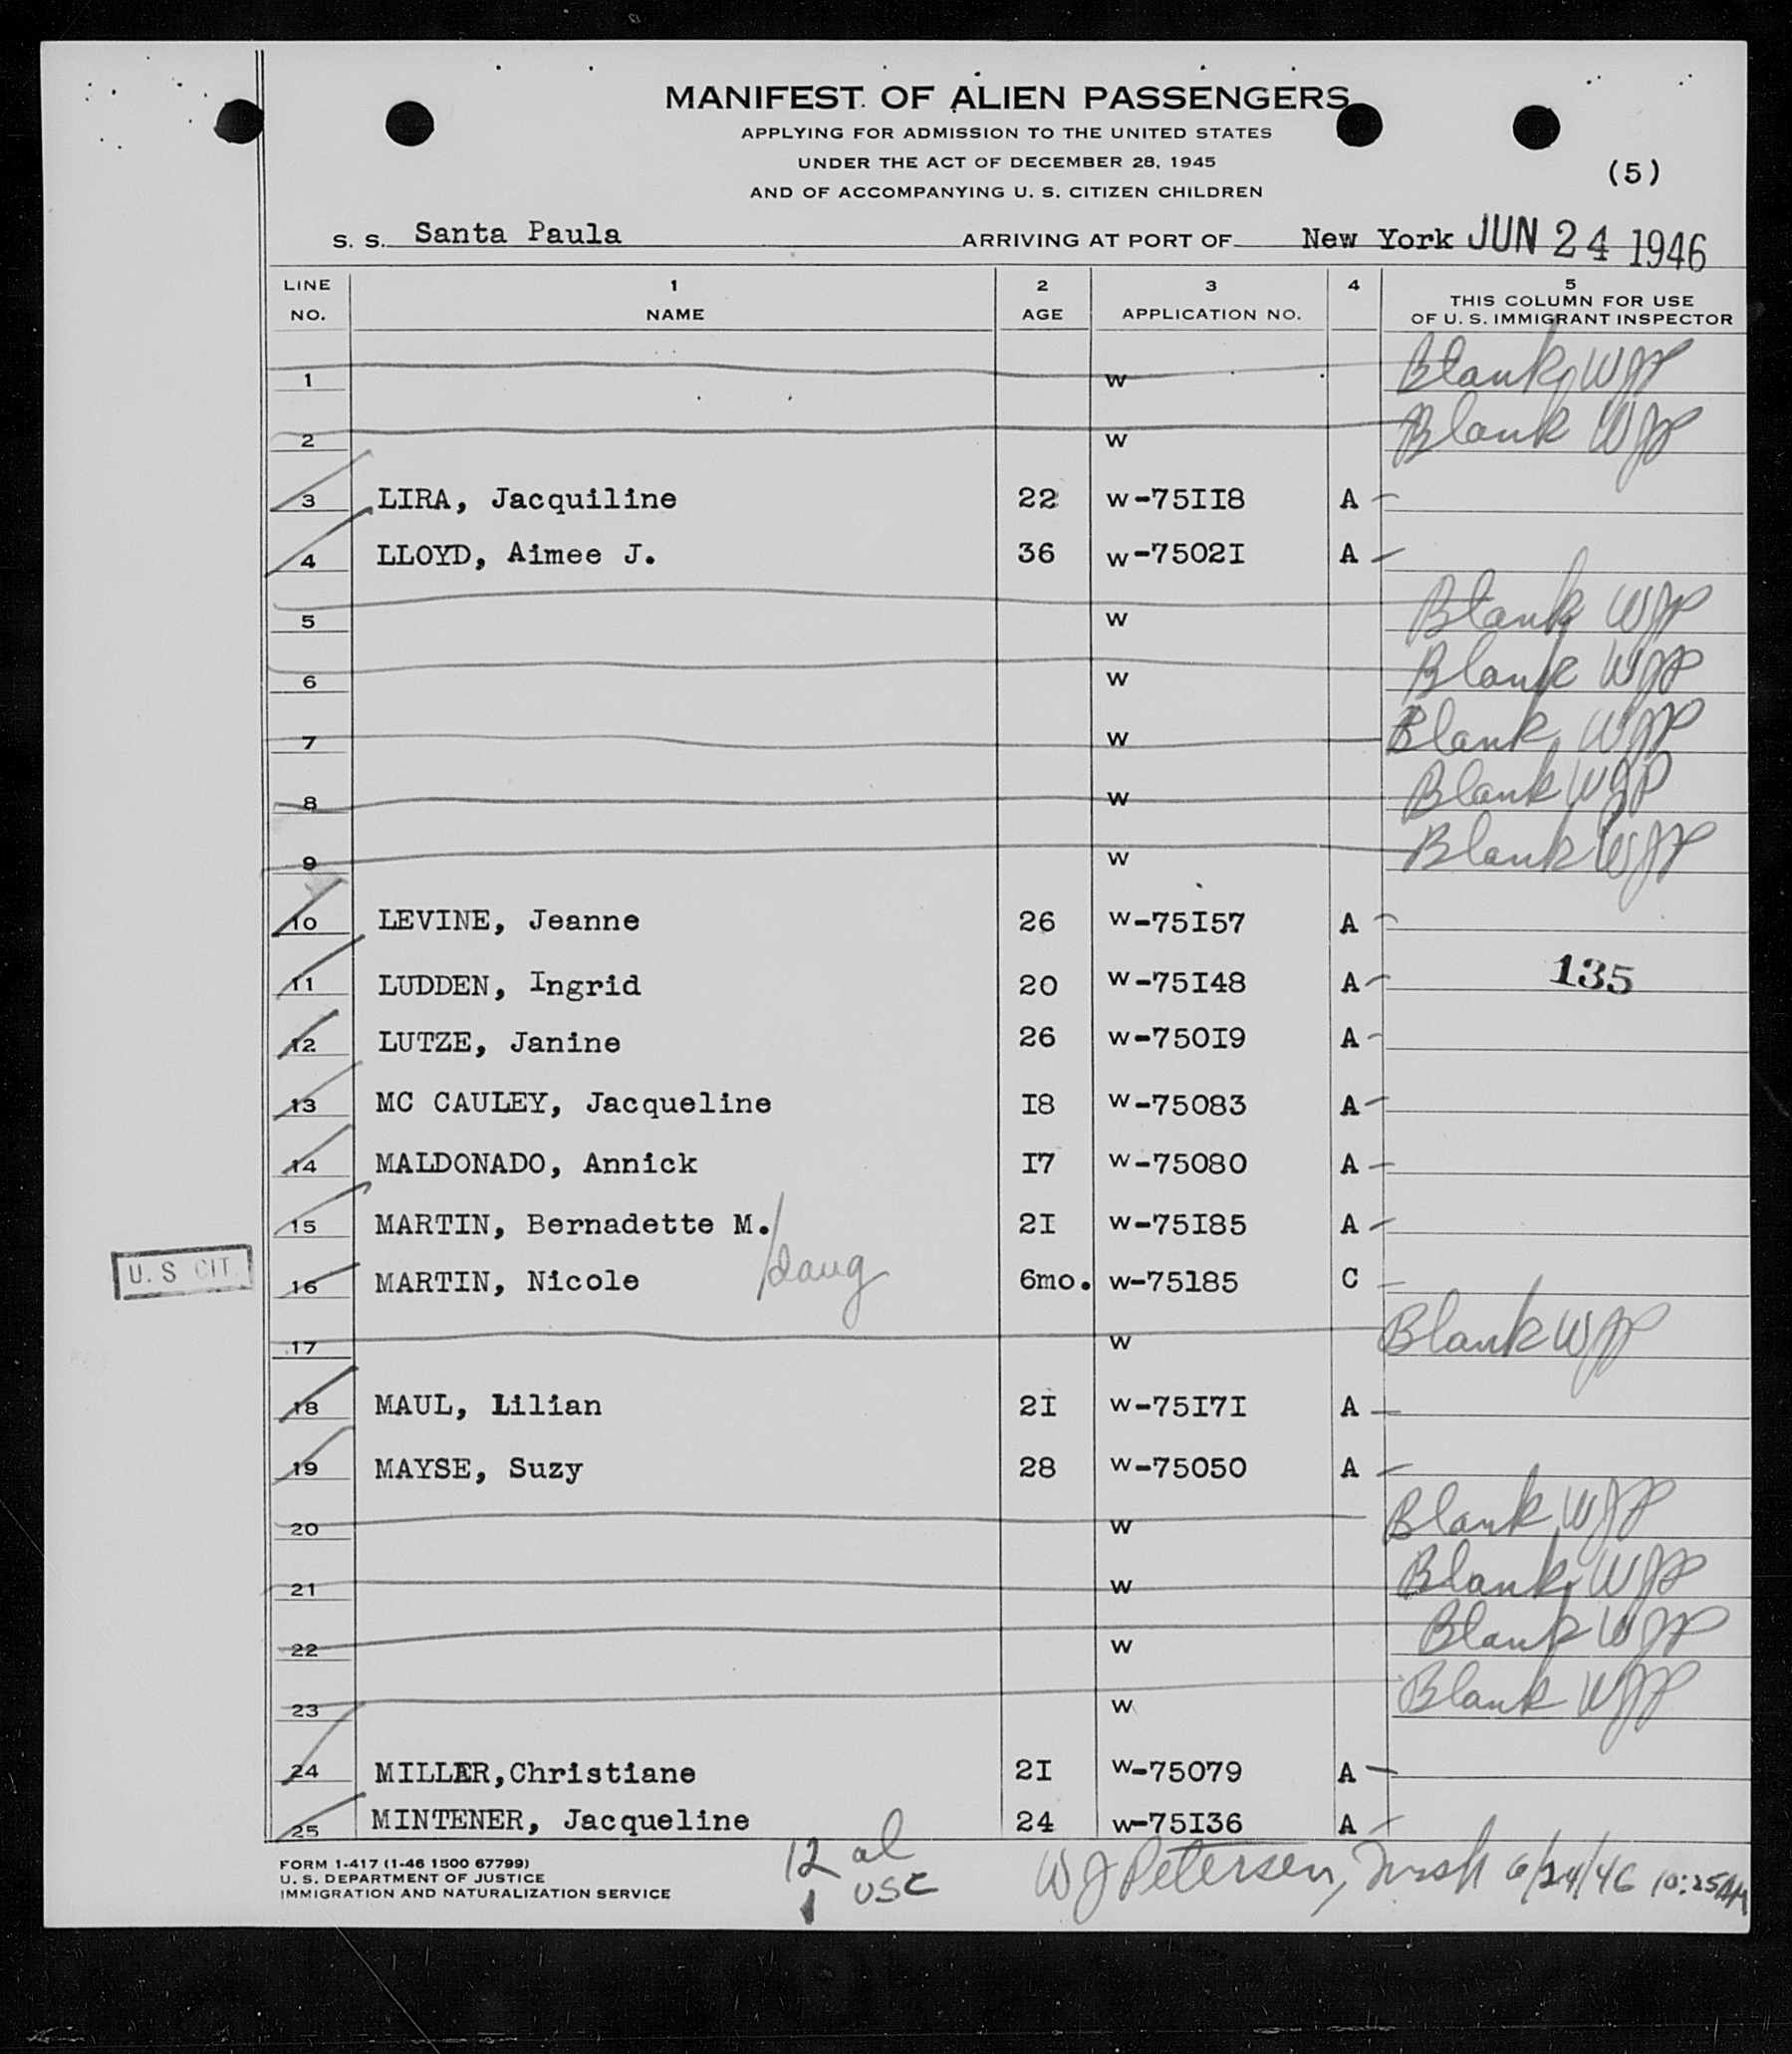 MANIFEST OF ALIEN PASSENGERS
APPLYING FOR ADMISSION TO THE UNITED STATES
UNDER THE ACT OF DECEMBER 28, 1945
AND OF ACCOMPANYING U. S. CITIZEN CHILDREN
(5)
S. S. Santa Paula ARRIVING AT PORT OF New York JUN 24 1946
LINE NO. 1 NAME 2 AGE 3 APPLICATION NO. 4 5 THIS COLUMN FOR USE OF U. S. IMMIGRANT INSPECTOR
1 W Blank WJP
2 W Blank WJP
3 LIRA, Jacquiline 22 W-75II8 A
4 LLOYD, Aimee J. 36 W-7502I A
5 W Blank WJP
6 W Blank WJP
7 W Blank WJP
8 W Blank WJP
9 W Blank WJP
10 LEVINE, Jeanne 26 W-75I57 A
11 LUDDEN, Ingrid 20 W-75I48 A 135
12 LUTZE, Janine 26 W-750I9 A
13 MC CAULEY, Jacqueline I8 W-75083 A
14 MALDONADO, Annick I7 W-75080 A
15 MARTIN, Bernadette M. 2I W-75I85 A
U. S CIT. 16 MARTIN, Nicole daug 6mo. W-75185 C
17 W Blank WJP
18 MAUL, Lilian 2I W-75I7I A
19 MAYSE, Suzy 28 W-75050 A
20 W Blank WJP
21 W Blank WJP
22 W Blank WJP
23 W Blank WJP
24 MILLER,Christiane 2I W-75079 A
25 MINTENER, Jacqueline 24 W-75I36 A
12 al
1 USC
W J Petersen, 6/24/46 10:25AM
FORM I-417 (1-46 1500 67799)
U. S. DEPARTMENT OF JUSTICE
IMMIGRATION AND NATURALIZATION SERVICE